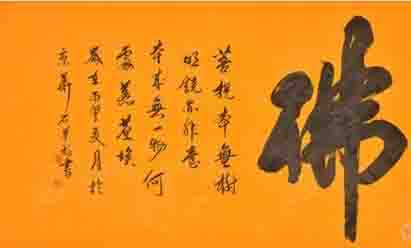 佛
菩提本無樹
明鏡亦非臺
本來無一物何
處惹塵埃
歲在丙夏月於
京華石書